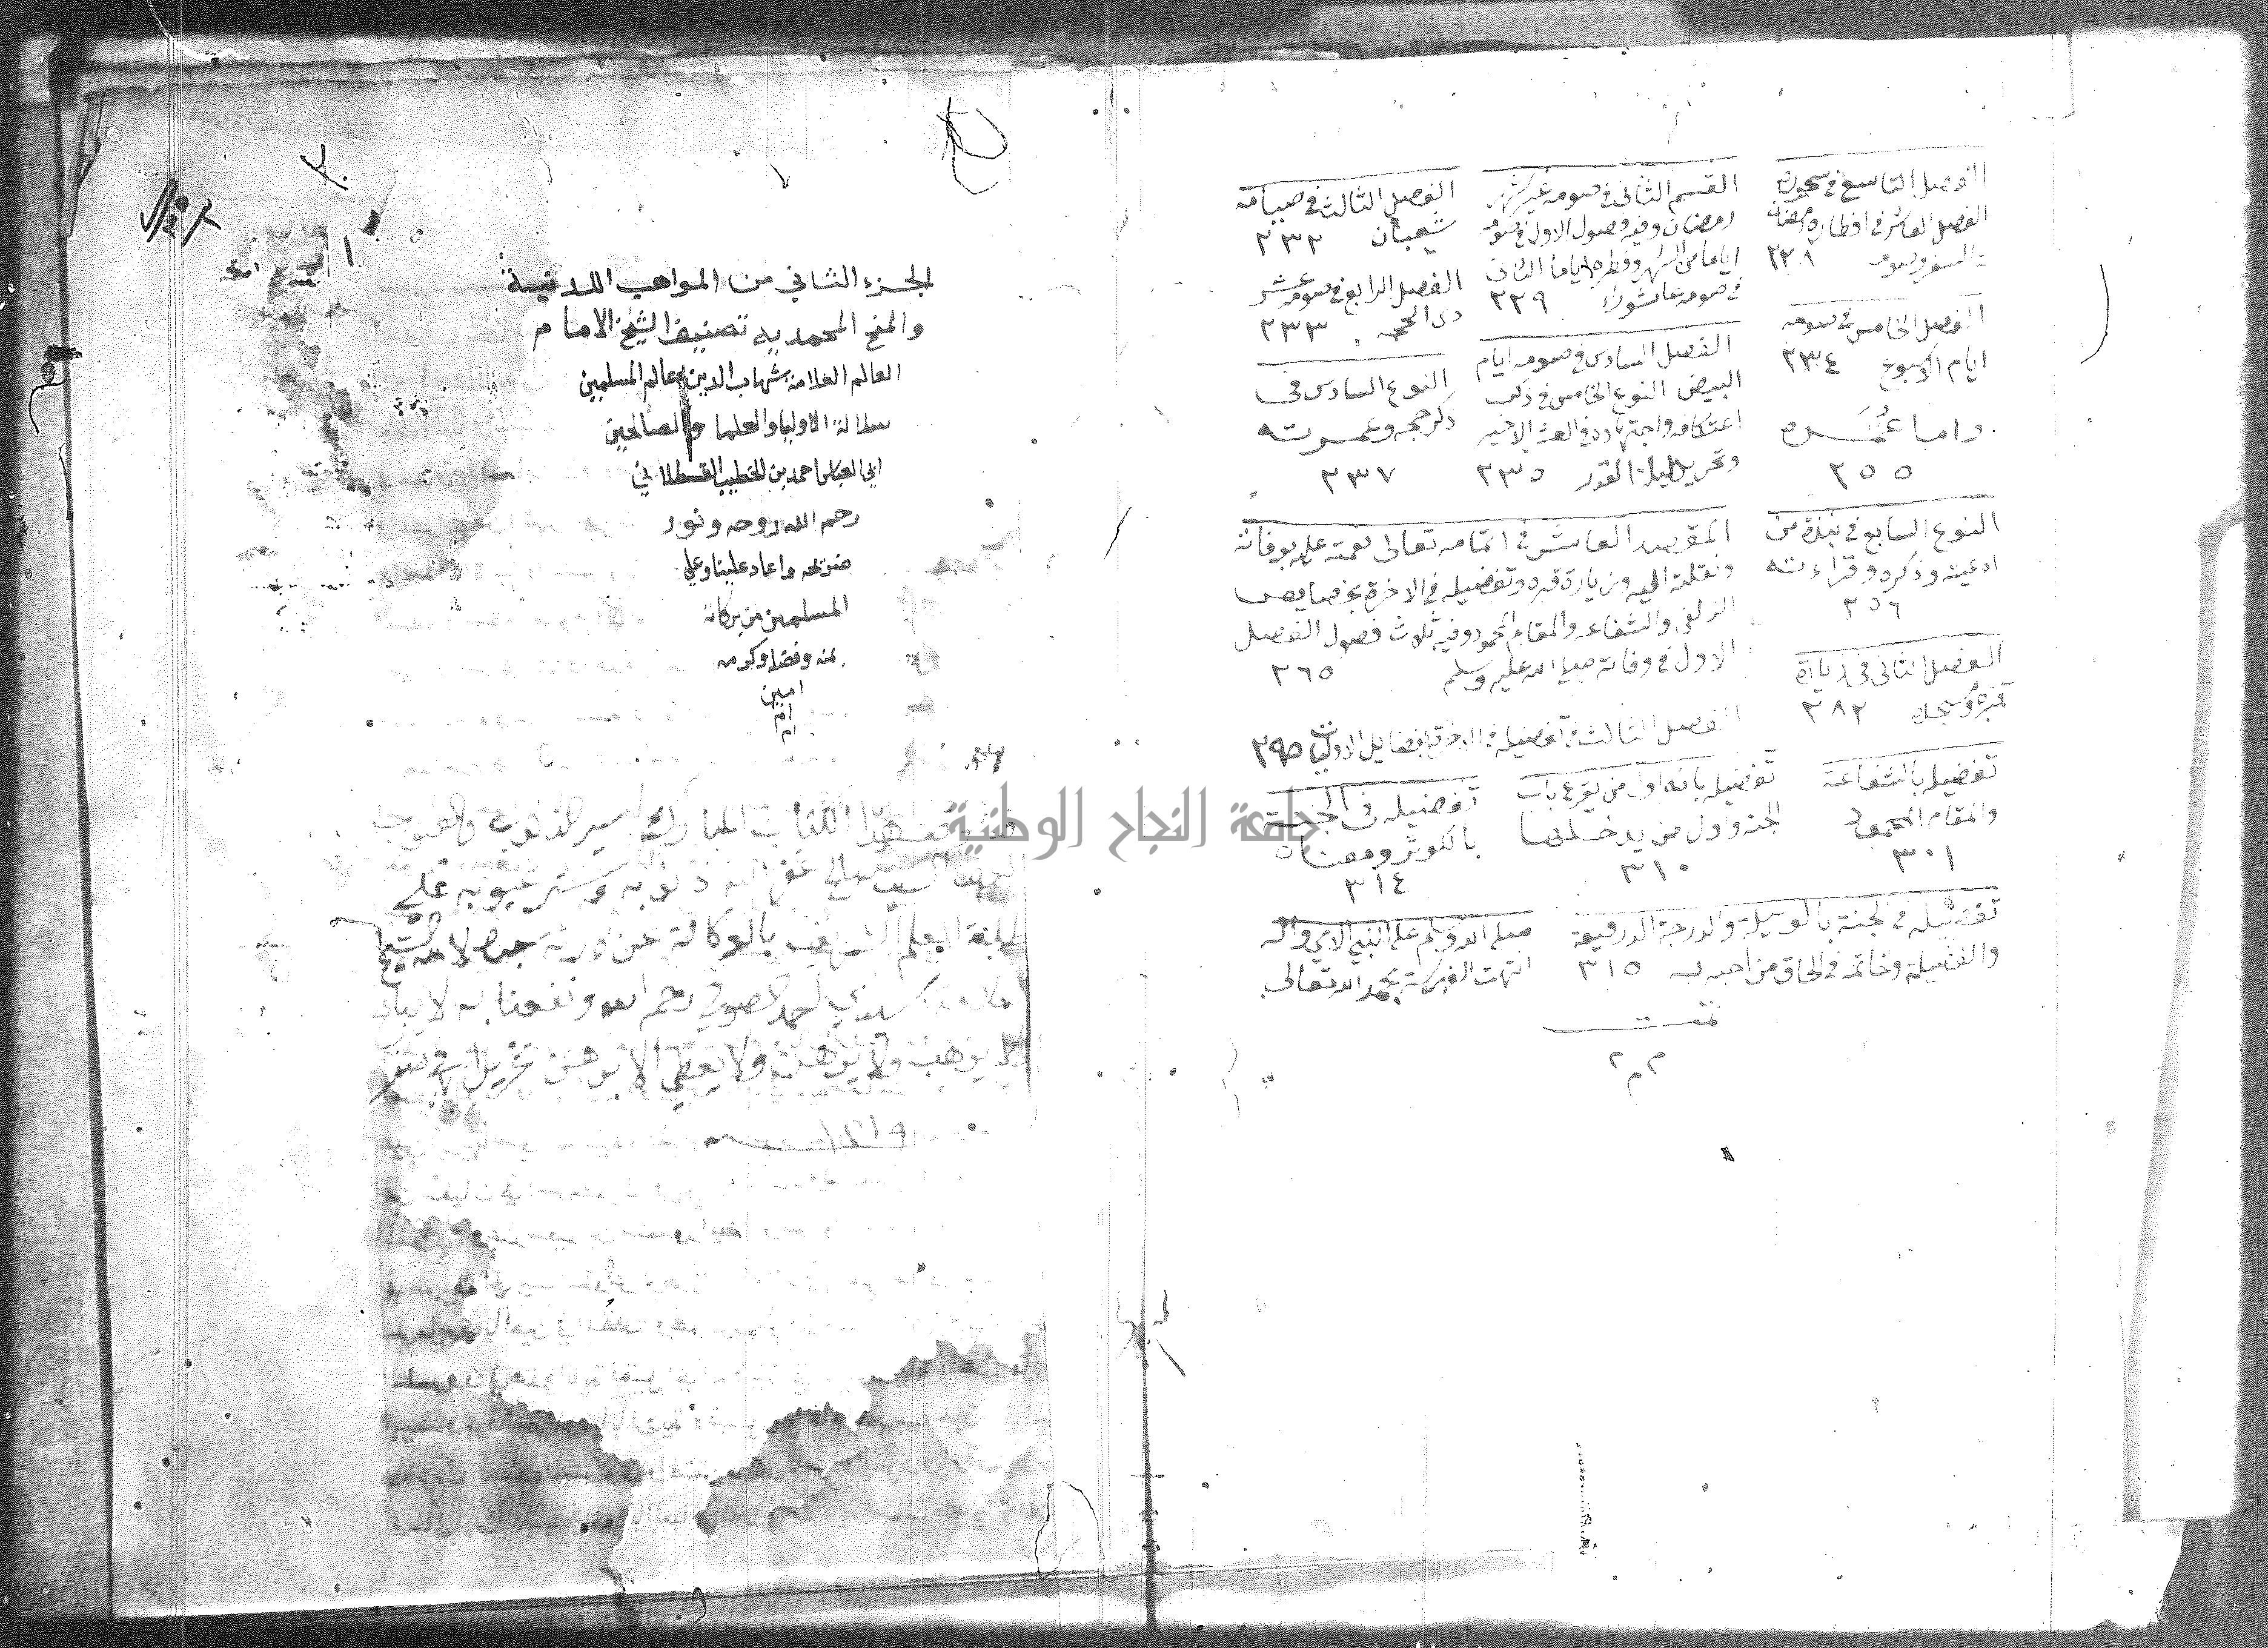 الفصل التاسع في سحوره
الفصل العاشر في افطاره رمضان
السفر وصومه ٢٢٨
القسم الثاني في صومه غير شهر
رمضان وفيه فصول الاول في صومه
اياما من الشهر وفطره اياما الثاني
في صومه عاشوراء ٢٢٩
الفصل الثالث في صيامه
شعبان ٢٣٢
الفصل الرابع في صومه عشر
ذي الحجه ٢٣٣
الفصل الخامس في صومه
ايام الاسبوع ٢٣٤
الفصل السادس في صومه ايام
البيض النوع الخامس في ذكر
اعتكافه واجتهاده في العشر الاخير
وتحريه ليلة القدر ٢٣٥
النوع السادس في
ذكر حجه وعمرته
٢٣٧
واما عمره
٢٥٥
النوع السابع في نبذة من
ادعيته وذكره وقراءته
٢٥٦
المقصد العاشر في اتمامه تعالى نعمته عليه بوفاته
ونقلته اليه وزيارة قبره وتفضيله في الاخرة بخصايص
الزلفى والشفاعه والمقام المحمود وفيه ثلاث فصول الفصل
الاول في وفاته صلى الله عليه وسلم ٢٦٥
الفصل الثاني في زيارة
قبره ومسجده ٢٨٢
الفصل الثالث في تفضيله في الاخرة بفضايل الاوليات ٢٩٥
تفضيله بالشفاعة
والمقام المحمود
٣٠١
تفضيله بانه اول من يقرع باب
الجنه واول من يدخلها
٣١٠
تفضيله في الجنة
بالكوثر ومعناه
٣١٤
تفضيله في الجنة بالوسيلة والدرجة الرفيعة
والفضيلة وخاتمه في الحاق من احبه به ٣١٥
صلى الله وسلم على النبي الامي واله
انتهت الفهرسة بحمد الله تعالى
تمت
م م م
الجزء الثاني من المواهب اللدنية
والمنح المحمديه تصنيف الشيخ الامام
العالم العلامة شهاب الدين عالم المسلمين
سلالة الاوليا والعلما والصالحين
ابي العباس احمد بن الخطيب القسطلاني
رحم الله روحه ونور
ضريحه واعاد علينا وعلى
المسلمين من بركاته
بمنه وفضله وكرمه
امين
ام
ام
هذا الكتاب المبارك الذنوب والعيوب
غفر الله ذنوبه وستر عيوبه على
طلبة العلم الشريف بالوكالة عن ورثة الشيخ
سيدي احمد الصوفي رحم الله ونفعنا به لا يباع
ولا يوهب ولا يرهن ولا يعطى الا برهن
جامعة النجاح الوطنية